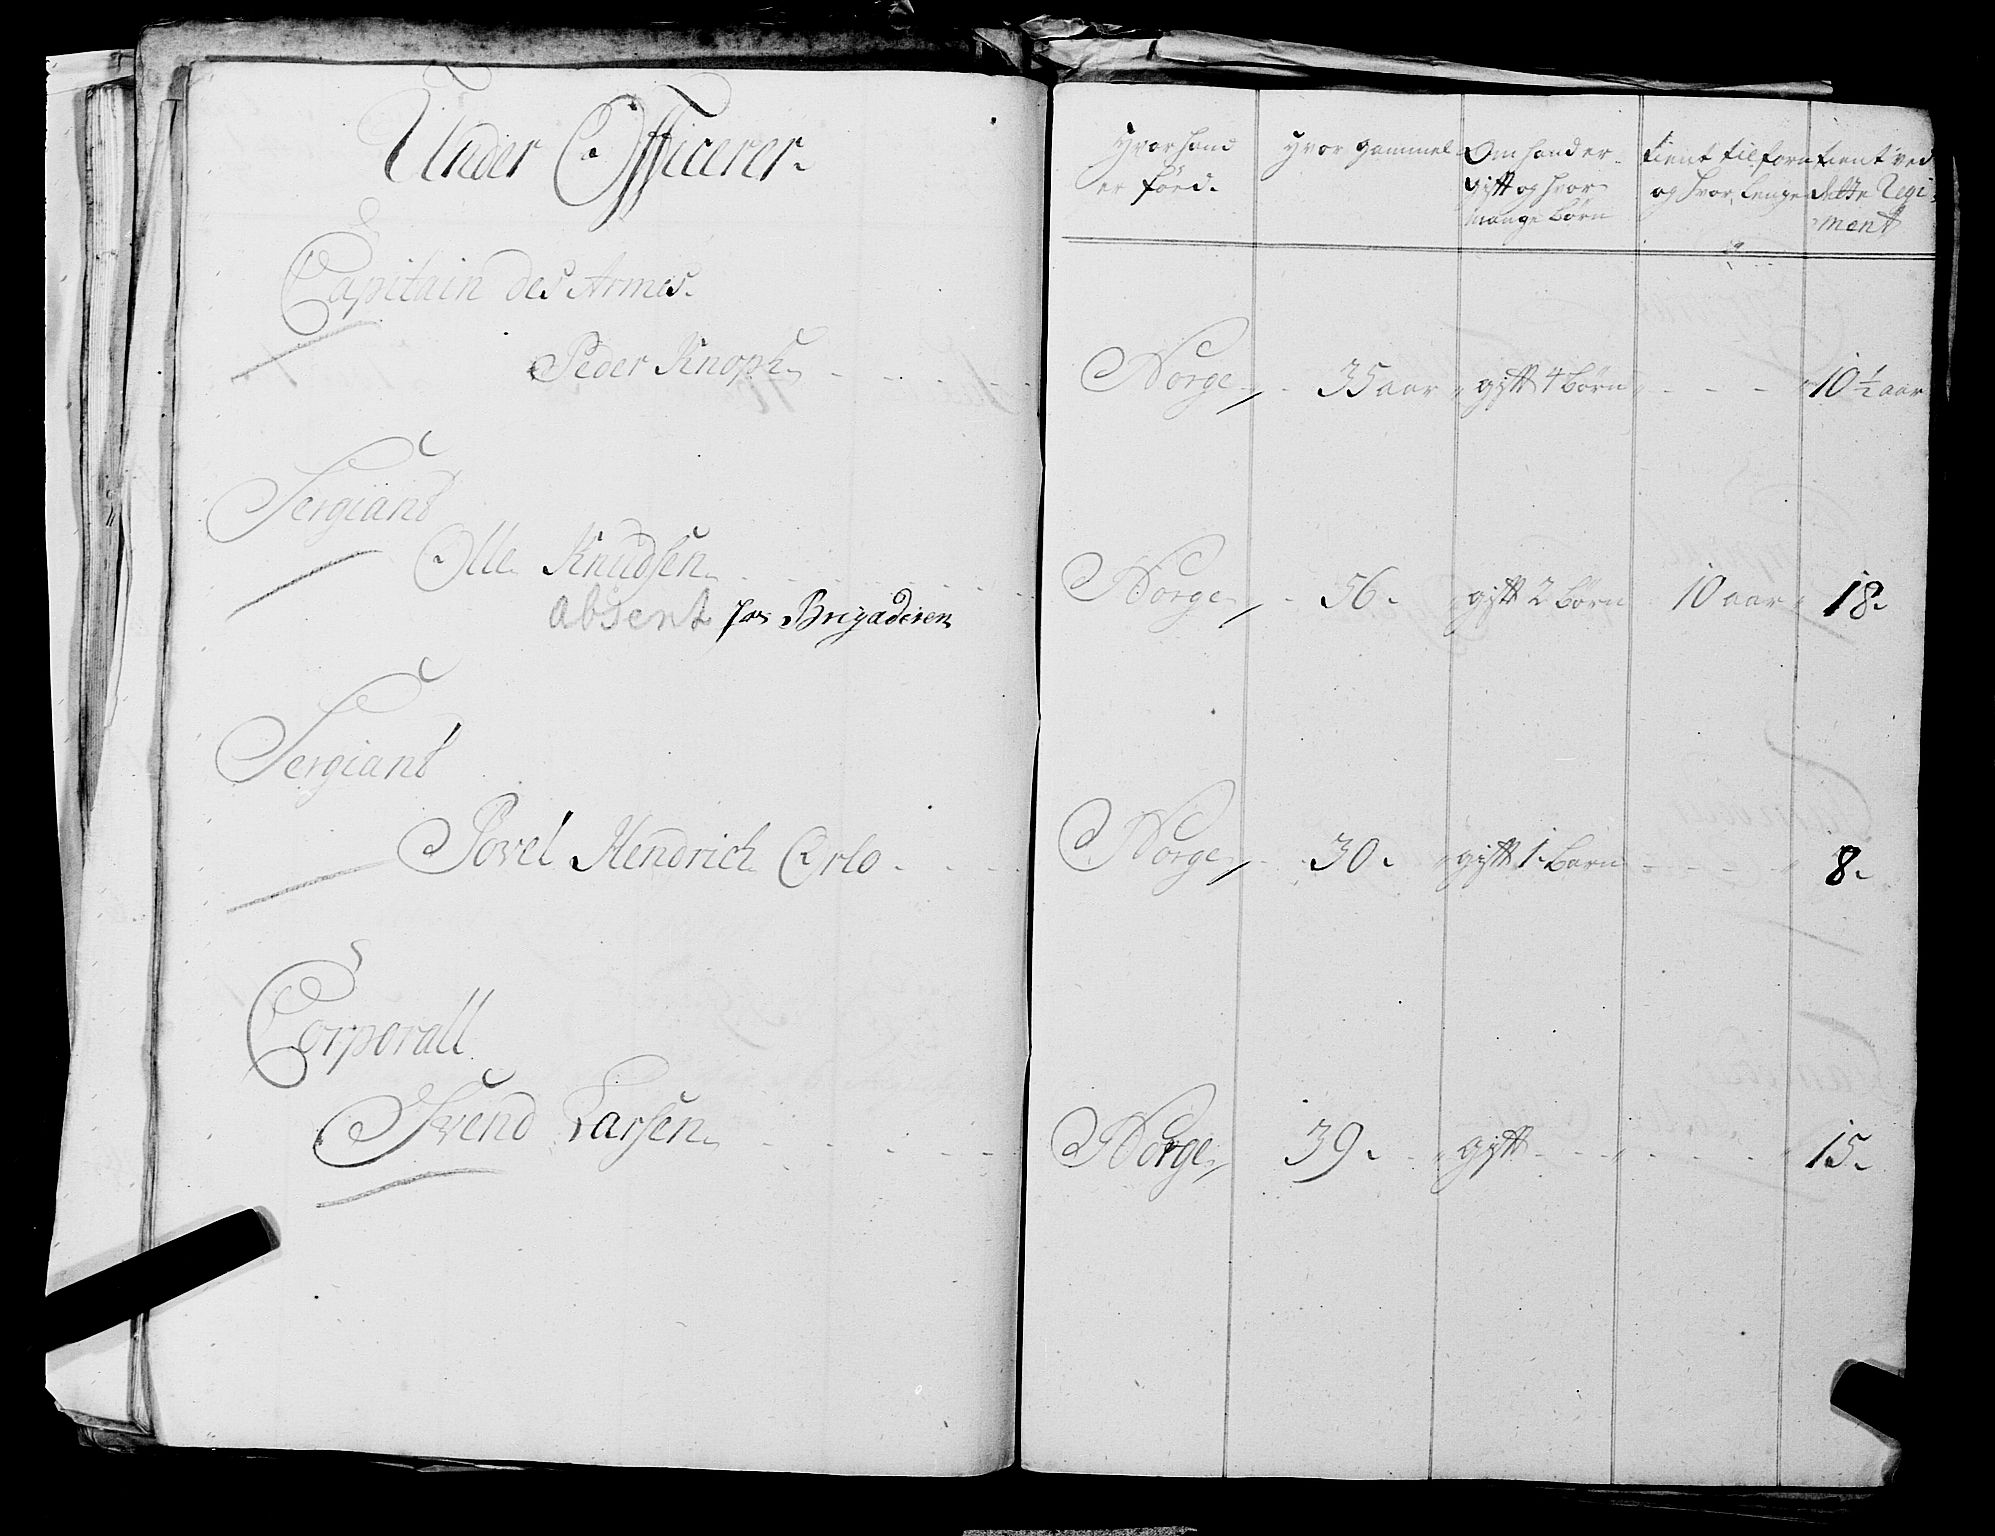 Under Officerer.
Capitain des Armes.
Peder Knoph
Sergiant
Olle Knudsen
absent hos Brigaderen
Sergiant
Povel Hendrich Orlo
Corporall
Svend Larsen
Hvor hand
er föed.
Hvor gammel
Om hand er
gift og hvor
mange börn
tient tilforn
og hvor lenge
tient ved
dette Regi-
ment
Norge 35 aar gift 4 börn 10 1/2 aar
Norge 56. gift 2 börn 10 aar 18.
Norge 30. gift 1. barn 8.
Norge 39. gift 15.